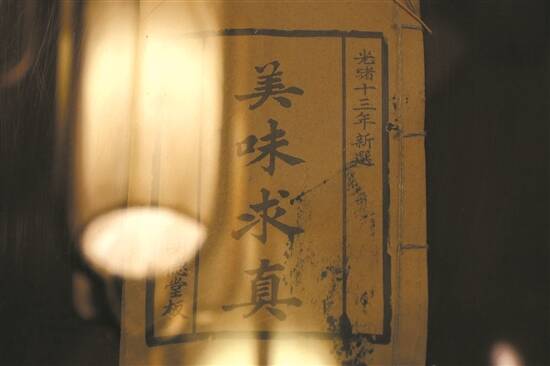 光緒十三年新選
美味求真
堂板